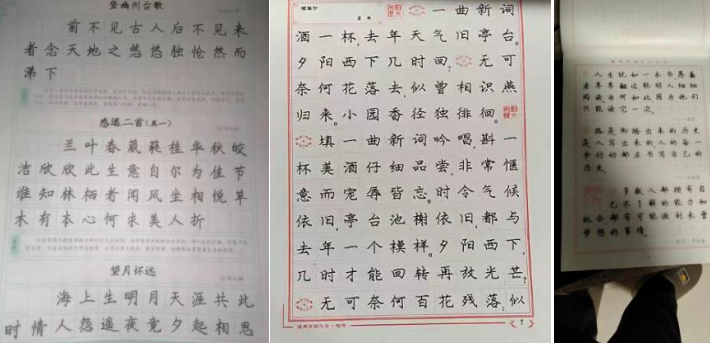 登幽州台歌
前不见古人后不见来
者念天地之悠悠独怆然而
涕下
感遇二首(其一)
兰叶春葳蕤桂华秋皎
洁欣欣此生意自尔为佳节
谁知林栖者闻风坐相悦草
木有本心何求美人折
望月怀远
海上生明月天涯共此
时情人怨遥夜竟夕起相思
一曲新词
酒一杯,去年天气旧亭台。
夕阳西下几时回?无可
奈何花落去,似曾相识燕
归来。小园香径独徘徊。
填一曲新词吟唱,斟一
杯美酒仔细品尝,非常惬
意而宠辱皆忘。时令气候
依旧,亭台池榭依旧,都与
去年一个模样。夕阳西下,
几时才能回转再放光芒?
无可奈何百花残落,似
7
人生犹如一本书,愚蠢
者草草翻过,聪明人细细
阅读。为何如此?因为他们
只能读它一次。
路是脚踏出来的,历史
是人写出来的。人的每一
步行动都在书写自己的
历史。
多数人都拥有自
己不了解的能力和
机会,都有可能做到未曾
梦想的事情。